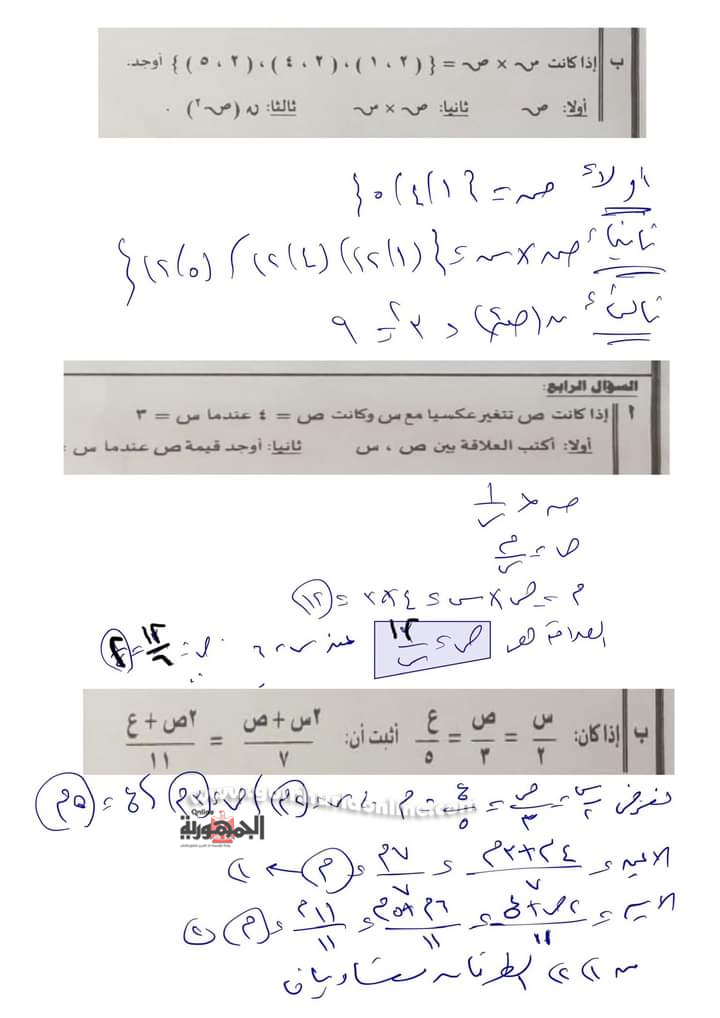 ب إذا كانت س × ص = { (٢ ، ١) ، (٢ ، ٤) ، (٢ ، ٥) } أوجد.
أولا: ص ثانيا: ص × س ثالثا: ن (ص٢) .
أولاً ص = {١، ٤، ٥}
ثانياً ص × س = {(١، ٢)، (٤، ٢)، (٥، ٢)}
ثالثاً ن (ص٢) = ٣٢ = ٩
السؤال الرابع:
أ إذا كانت ص تتغير عكسيا مع س وكانت ص = ٤ عندما س = ٣
أولا: أكتب العلاقة بين ص ، س ثانيا: أوجد قيمة ص عندما س :
ص ∝ ١/س
ص = م/س
م = ص × س = ٤ × ٣ = ١٢
العلاقة هى ص = ١٢/س عند س = ٦ ص = ١٢/٦ = ٢
ب إذا كان: س/٢ = ص/٣ = ع/٥ أثبت أن: ٢س + ص/٧ = ٢ص + ع/١١
بفرض س/٢ = ص/٣ = ع/٥ = م ، س = ٢م ، ص = ٣م ، ع = ٥م
Online
الجمهورية
الأيمن = ٤م + ٣م/٧ = ٧م/٧ = م ← ١
الأيسر = ٢ص + ع/١١ = ٦م + ٥م/١١ = ١١م/١١ = م ٢
من ١، ٢ الطرفان متساويان